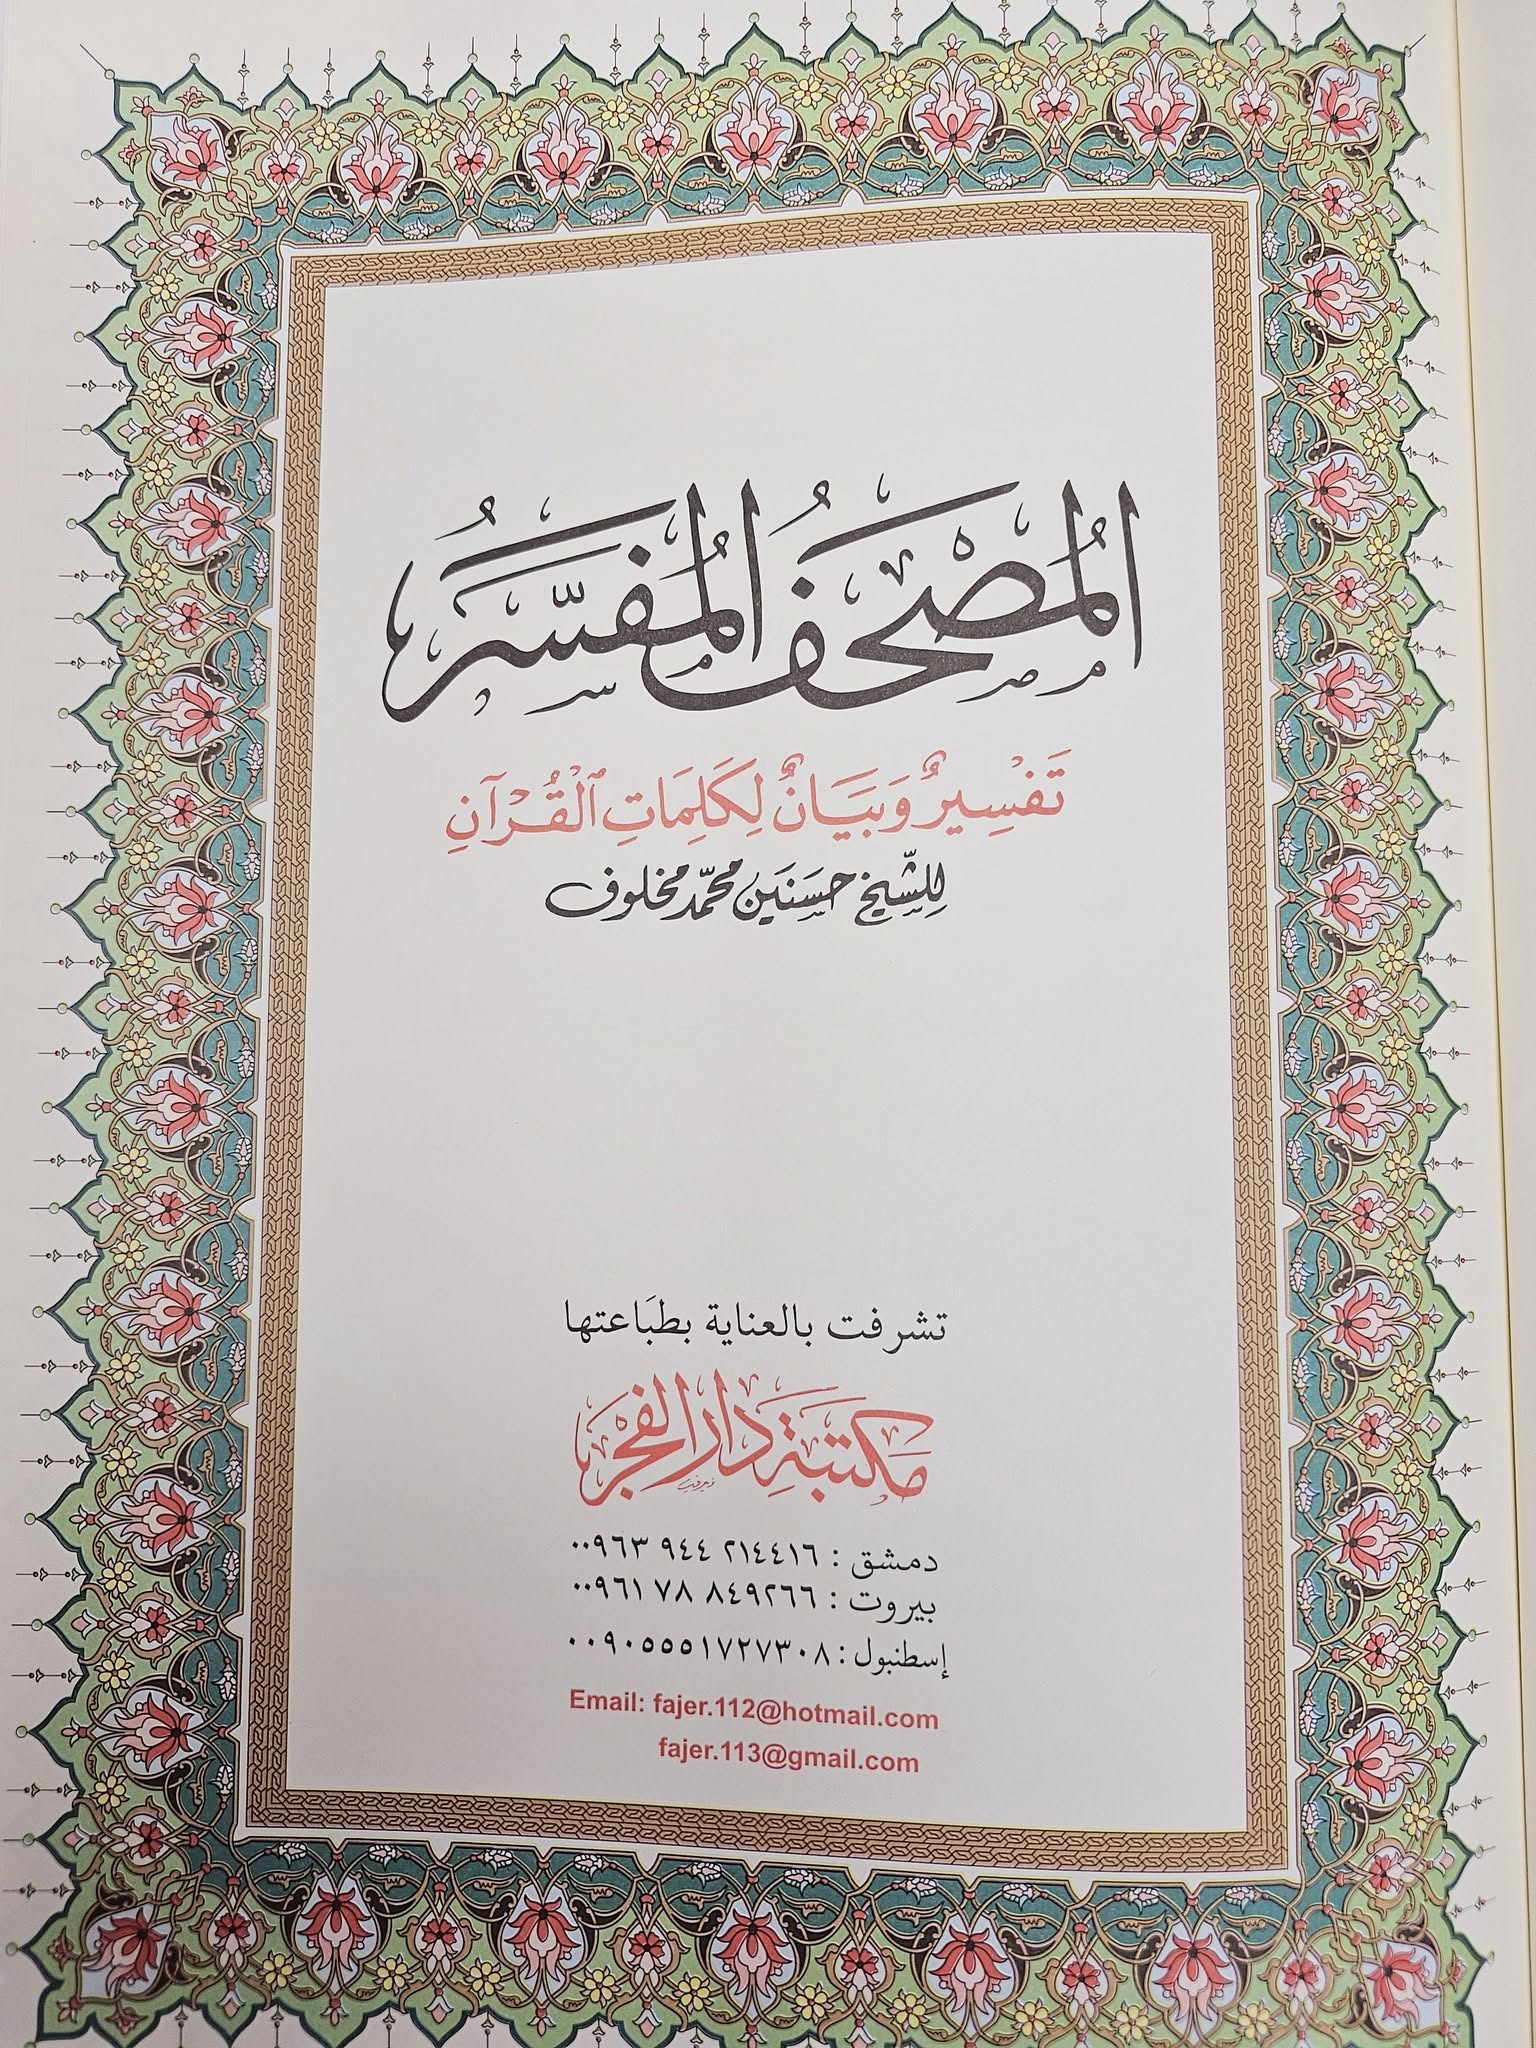 المُصْحَفُ المُفَسَّرُ
تَفْسِيرٌ وَبَيَانٌ لِكَلِمَاتِ ٱلْقُرْآنِ
لِلشَّيخ حسَنَين محمّد مخلوف
تشرفت بالعناية بطبَاعتها
مكتبَةِ دَار الفَجْر
دمشق : ٠٠٩٦٣ ٩٤٤ ٢١٤٤١٦
بيروت : ٠٠٩٦١ ٧٨ ٨٤٩٢٦٦
إسطنبول : ٠٠٩٠٥٥٥١٧٢٧٣٠٨
Email: fajer.112@hotmail.com
fajer.113@gmail.com